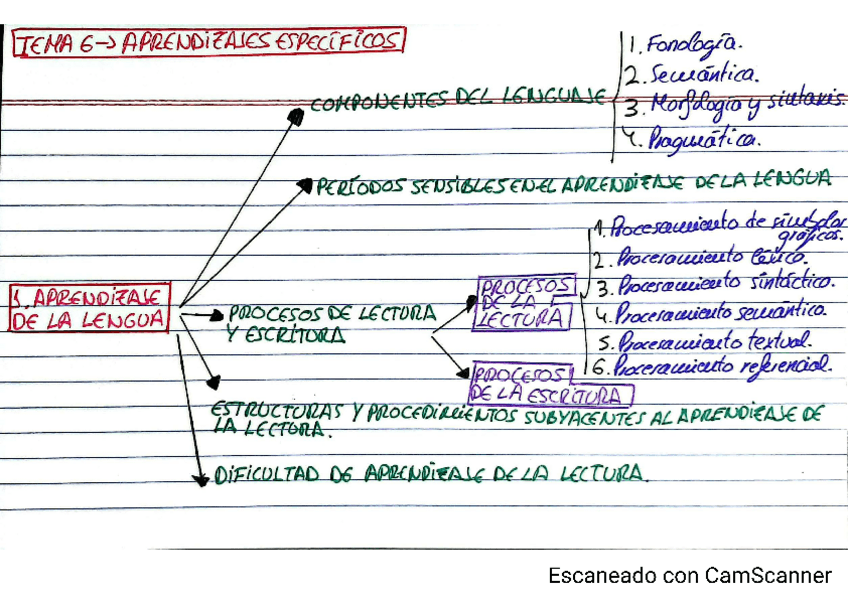 TEMA 6→ APRENDIZAJES ESPECÍFICOS
COMPONENTES DEL LENGUAJE
1. Fonología.
2. Semántica.
3. Morfología y sintaxis.
4. Pragmática.
PERÍODOS SENSIBLES EN EL APRENDIZAJE DE LA LENGUA
1. APRENDIZAJE
DE LA LENGUA
PROCESOS DE LECTURA
Y ESCRITURA
PROCESOS
DE LA
LECTURA
1. Procesamiento de símbolos
gráficos.
2. Procesamiento léxico.
3. Procesamiento sintáctico.
4. Procesamiento semántico.
5. Procesamiento textual.
6. Procesamiento referencial.
PROCESOS
DE LA ESCRITURA
ESTRUCTURAS Y PROCEDIMIENTOS SUBYACENTES AL APRENDIZAJE DE
LA LECTURA.
DIFICULTAD DE APRENDIZAJE DE LA LECTURA.
Escaneado con CamScanner